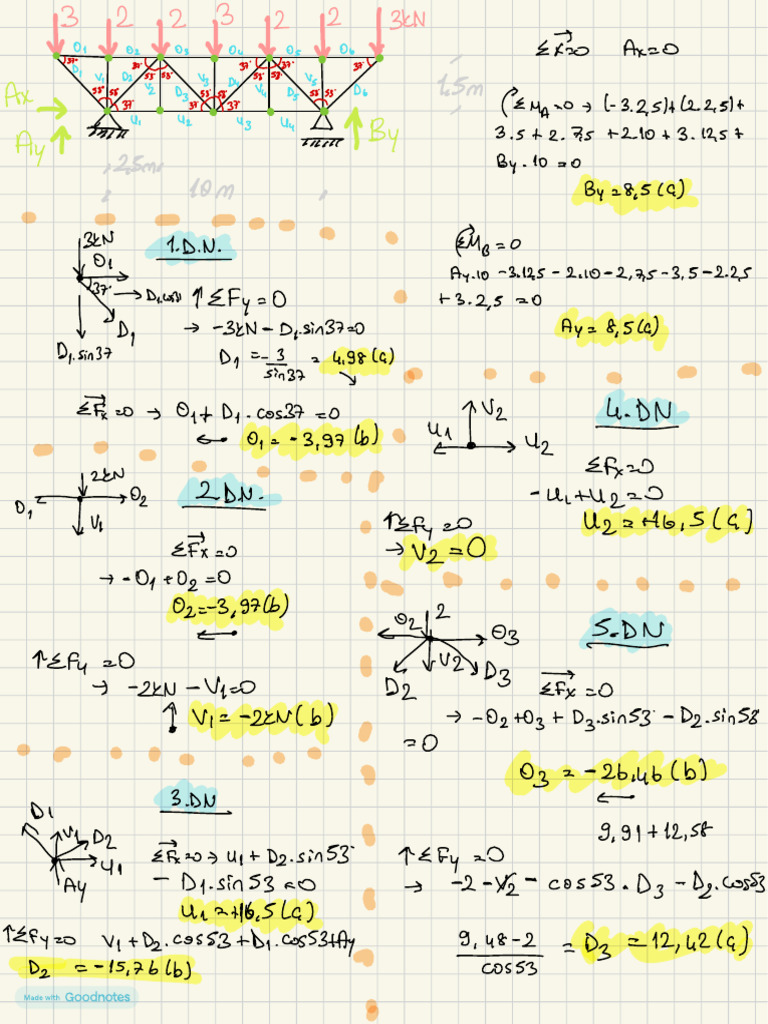 3 2 2 3 2 2 3kN
O1 O2 O3 O4 O5 O6
37° 37° 37° 37° 37° 37°
D1 V1 D2 V2 D3 V3 D4 V4 D5 V5 D6
53° 58° 53° 58° 53° 58°
37° 37° 37° 37°
U1 U2 U3 U4
Ax
Ay
By
1,5m
2,5m
10m
ΣFx=0 Ax=0
ΣMA=0 → (-3.2,5)+(2.2,5)+
3.5+2.7,5+2.10+3.12,5+
By.10=0
By=8,5(ç)
ΣMB=0
Ay.10-3.12,5-2.10-2,7,5-3,5-2.2,5
+3.2,5=0
Ay=8,5(ç)
1.D.N.
3kN
O1
37°
D1.cos37
D1
D1.sin37
↑ΣFy=0
→ -3kN-D1.sin37=0
D1=-3/sin37=4,98(ç)
ΣFx=0 → O1+D1.cos37=0
O1=-3,97(b)
2.D.N.
2kN
O1
O2
V1
ΣFx=0
→ -O1+O2=0
O2=-3,97(b)
↑ΣFy=0
→ -2kN-V1=0
V1=-2kN(b)
3.DN
D1
V1
D2
U1
Ay
ΣFx=0→U1+D2.sin53°
-D1.sin53=0
U1=+16,5(ç)
↑ΣFy=0 V1+D2.cos53+D1.cos53+Ay
D2=-15,76(b)
4.DN
V2
U1
U2
ΣFx=0
-U1+U2=0
U2=+16,5(ç)
↑ΣFy=0
→ V2=0
5.DN
O2
2
O3
V2
D3
D2
ΣFx=0
→ -O2+O3+D3.sin53°-D2.sin58
=0
O3=-26,46(b)
9,91+12,58
↑ΣFy=0
→ -2-V2-cos53.D3-D2.cos53
9,48-2/cos53=D3=12,42(ç)
Made with Goodnotes